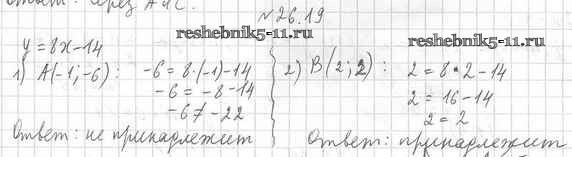 Ответ: через А и С.
№26.19
reshebnik5-11.ru
y = 8x - 14
1) A(-1; -6) : -6 = 8·(-1) - 14
-6 = -8 - 14
-6 ≠ -22
Ответ: не принадлежит
reshebnik5-11.ru
2) B(2; 2) : 2 = 8·2 - 14
2 = 16 - 14
2 = 2
Ответ: принадлежит